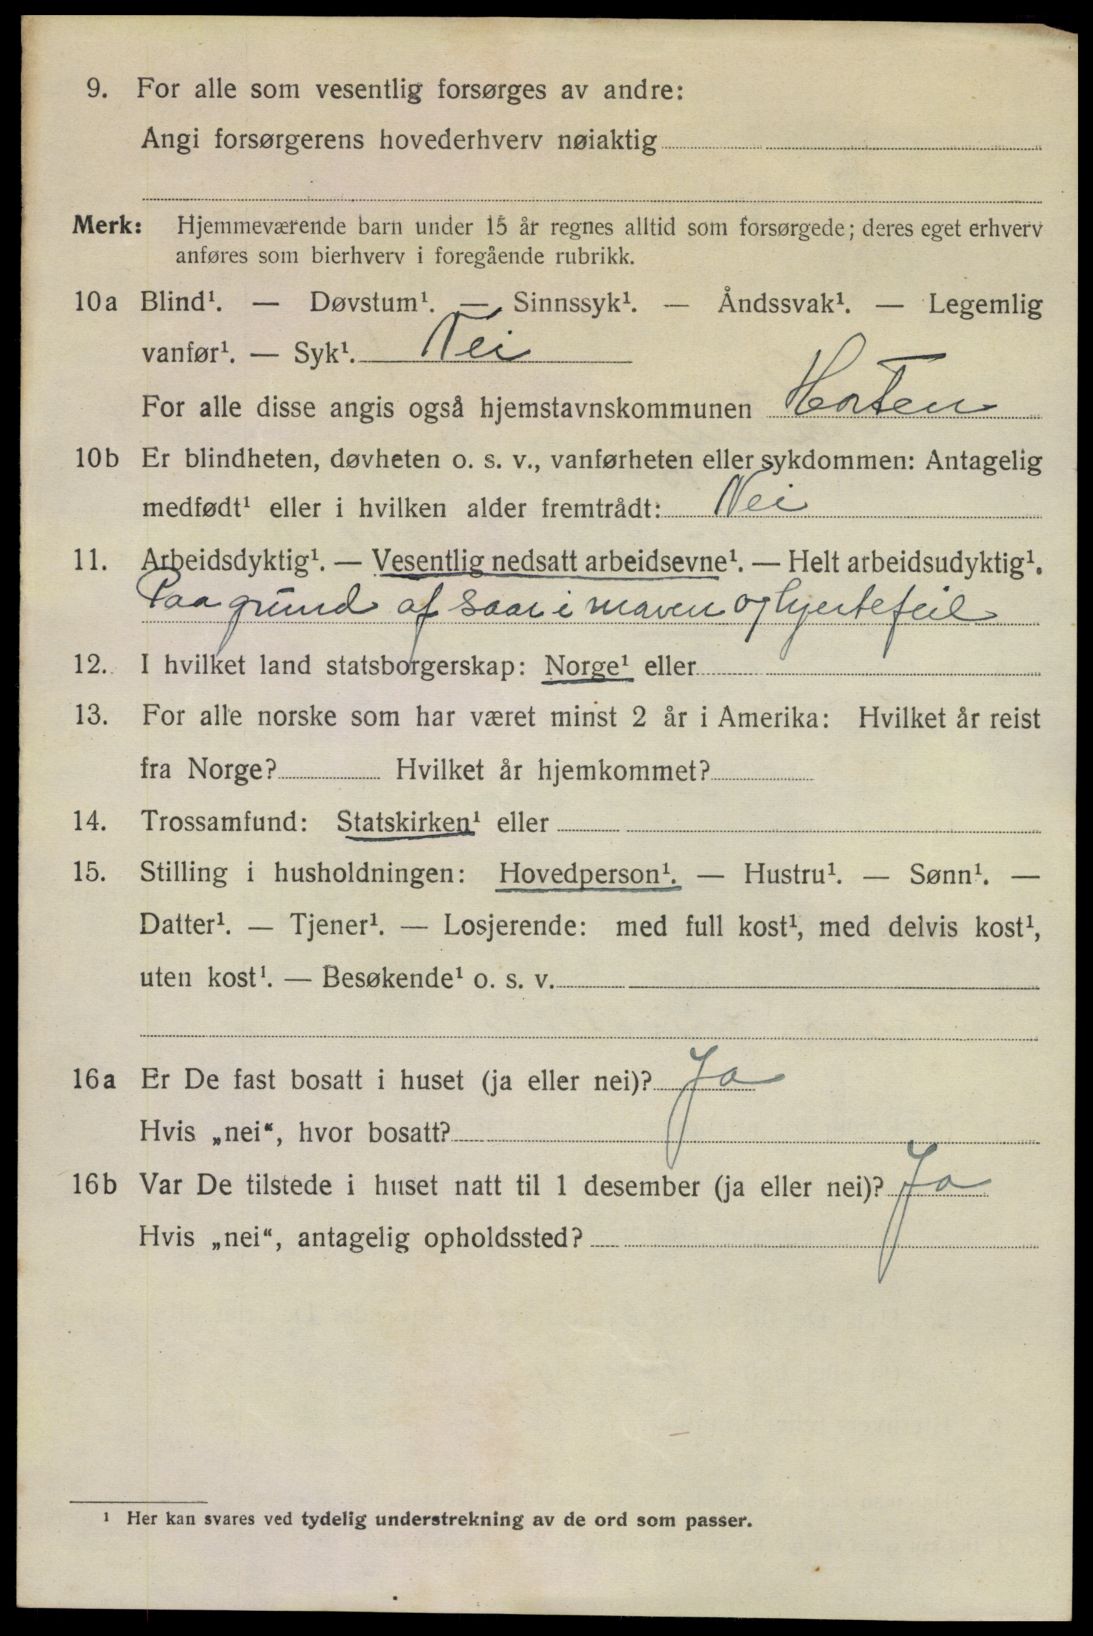 9. For alle som vesentlig forsørges av andre:
Angi forsørgerens hovederhverv nøiaktig
Merk: Hjemmeværende barn under 15 år regnes alltid som forsørgede; deres eget erhverv
anføres som bierhverv i foregående rubrikk.
10a Blind¹. — Døvstum¹. — Sinnssyk¹. — Åndssvak¹. — Legemlig
vanfør¹. — Syk¹. Nei
For alle disse angis også hjemstavnskommunen Horten
10b Er blindheten, døvheten o. s. v., vanførheten eller sykdommen: Antagelig
medfødt¹ eller i hvilken alder fremtrådt: Nei
11. Arbeidsdyktig¹. — Vesentlig nedsatt arbeidsevne¹. — Helt arbeidsudyktig¹.
Paa grund af saar i maven og hjertefeil
12. I hvilket land statsborgerskap: Norge¹ eller
13. For alle norske som har været minst 2 år i Amerika: Hvilket år reist
fra Norge? Hvilket år hjemkommet?
14. Trossamfund: Statskirken¹ eller
15. Stilling i husholdningen: Hovedperson¹. — Hustru¹. — Sønn¹. —
Datter¹. — Tjener¹. — Losjerende: med full kost¹, med delvis kost¹,
uten kost¹. — Besøkende¹ o. s. v.
16a Er De fast bosatt i huset (ja eller nei)? Ja
Hvis „nei“, hvor bosatt?
16b Var De tilstede i huset natt til 1 desember (ja eller nei)? Ja
Hvis „nei“, antagelig opholdssted?
¹ Her kan svares ved tydelig understrekning av de ord som passer.